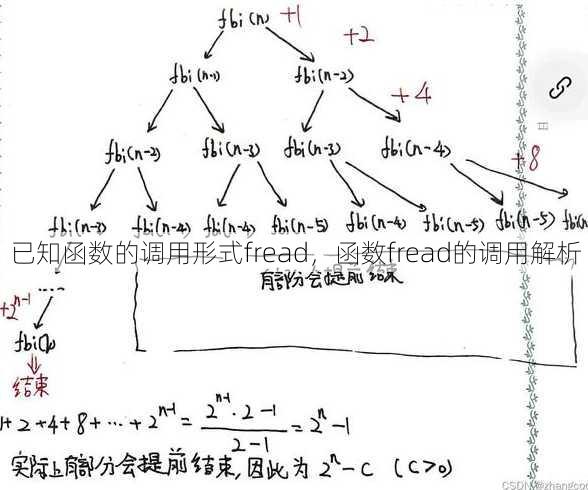 fbi(n) +1
+2
fbi(n-1) fbi(n-2)
+4
fbi(n-2) fbi(n-3) fbi(n-3) fbi(n-4)
+8
fbi(n-3) fbi(n-4) fbi(n-4) fbi(n-5) fbi(n-4) fbi(n-5) fbi(n-5) fbi(n
已知函数的调用形式fread，函数fread的调用解析
有部分会提前结束
+2^{n-1}
....
fbi(1)
结束
1+2+4+8+…+2^{n-1} = \frac{2^{n-1}·2-1}{2-1} = 2^n-1
实际上有部分会提前结束,因此为 2^n-C (C>0)
CSDN @zhangcon